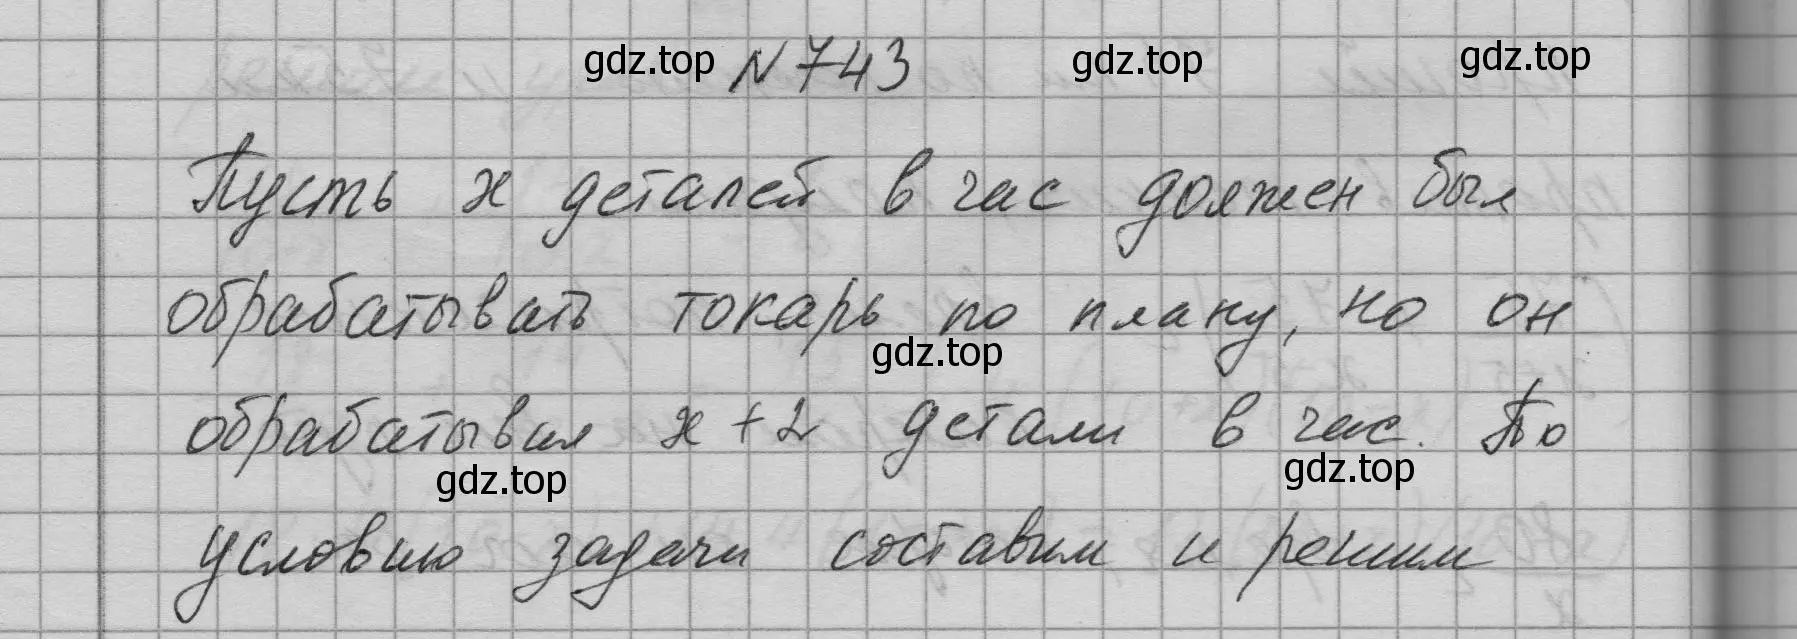 gdz.top №743 gdz.top gdz.top
Пусть x деталей в час должен был
обрабатывать токарь по плану, но он
gdz.top
обрабатывал x+2 детали в час. По
gdz.top gdz.top
условию задачи составим и решим